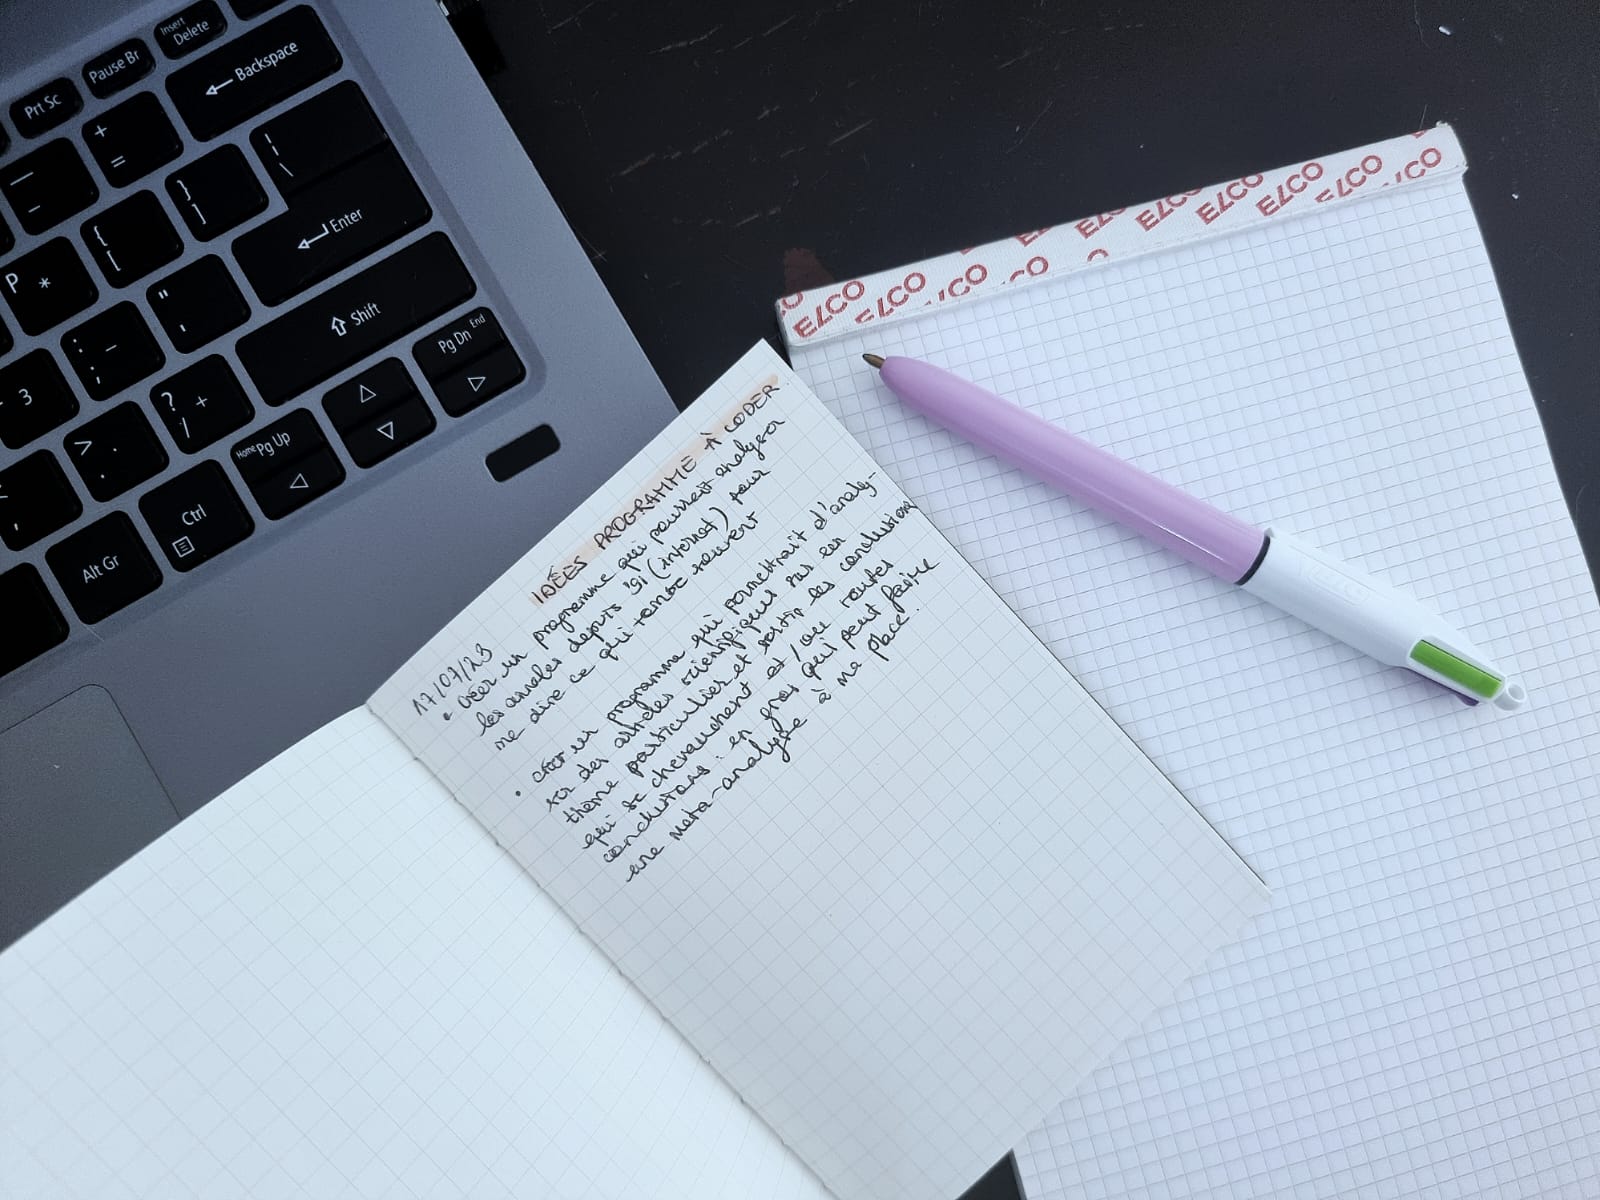 Insert
Delete
Prt Sc
Pause Br
← Backspace
+
=
—
-
|
\
}
]
{
[
P *
↵ Enter
"
'
: -
;
⇧ Shift
3
? +
/
>
.
,
Home Pg Up
◁
△
▽
Pg Dn End
▷
Alt Gr
Ctrl
ELCO ELCO ELCO ELCO ELCO ELCO
ELCO ELCO ELCO ELCO ELCO
IDÉES PROGRAMME À CODER
17/07/23
• créer un programme qui pourrait analyser
les annales depuis '91 (internet) pour
me dire ce qui tombe souvent
• créer un programme qui permettrait d'analy-
ser des articles scientifiques sur un
thème particulier et sortir les conclusions
qui se chevauchent et/ou toutes
conclusions : en gros qui peut faire
une méta-analyse à ma place.